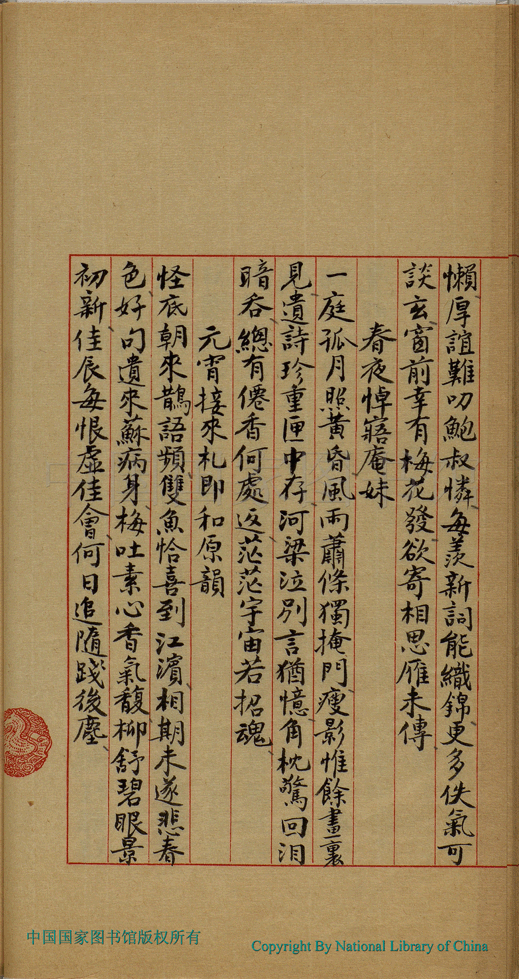 懶厚誼難叨鮑叔憐每羨新詞能織錦更多佚氣可
談玄窗前幸有梅花發欲寄相思雁未傳
春夜悼寤庵妹
一庭孤月照黃昏風雨蕭條獨掩門瘦影惟餘畫裏
見遺詩珍重匣中存河梁泣別言猶憶角枕驚回淚
暗吞總有僊香何處返茫茫宇宙若招魂
元宵接來札即和原韻
怪底朝來鵲語頻雙魚恰喜到江濱相期未遂悲春
色好句遺來蘇病身梅吐素心香氣馥柳舒碧眼景
初新佳辰每恨虛佳會何日追隨踐後塵
中国国家图书馆版权所有
Copyright By National Library of China